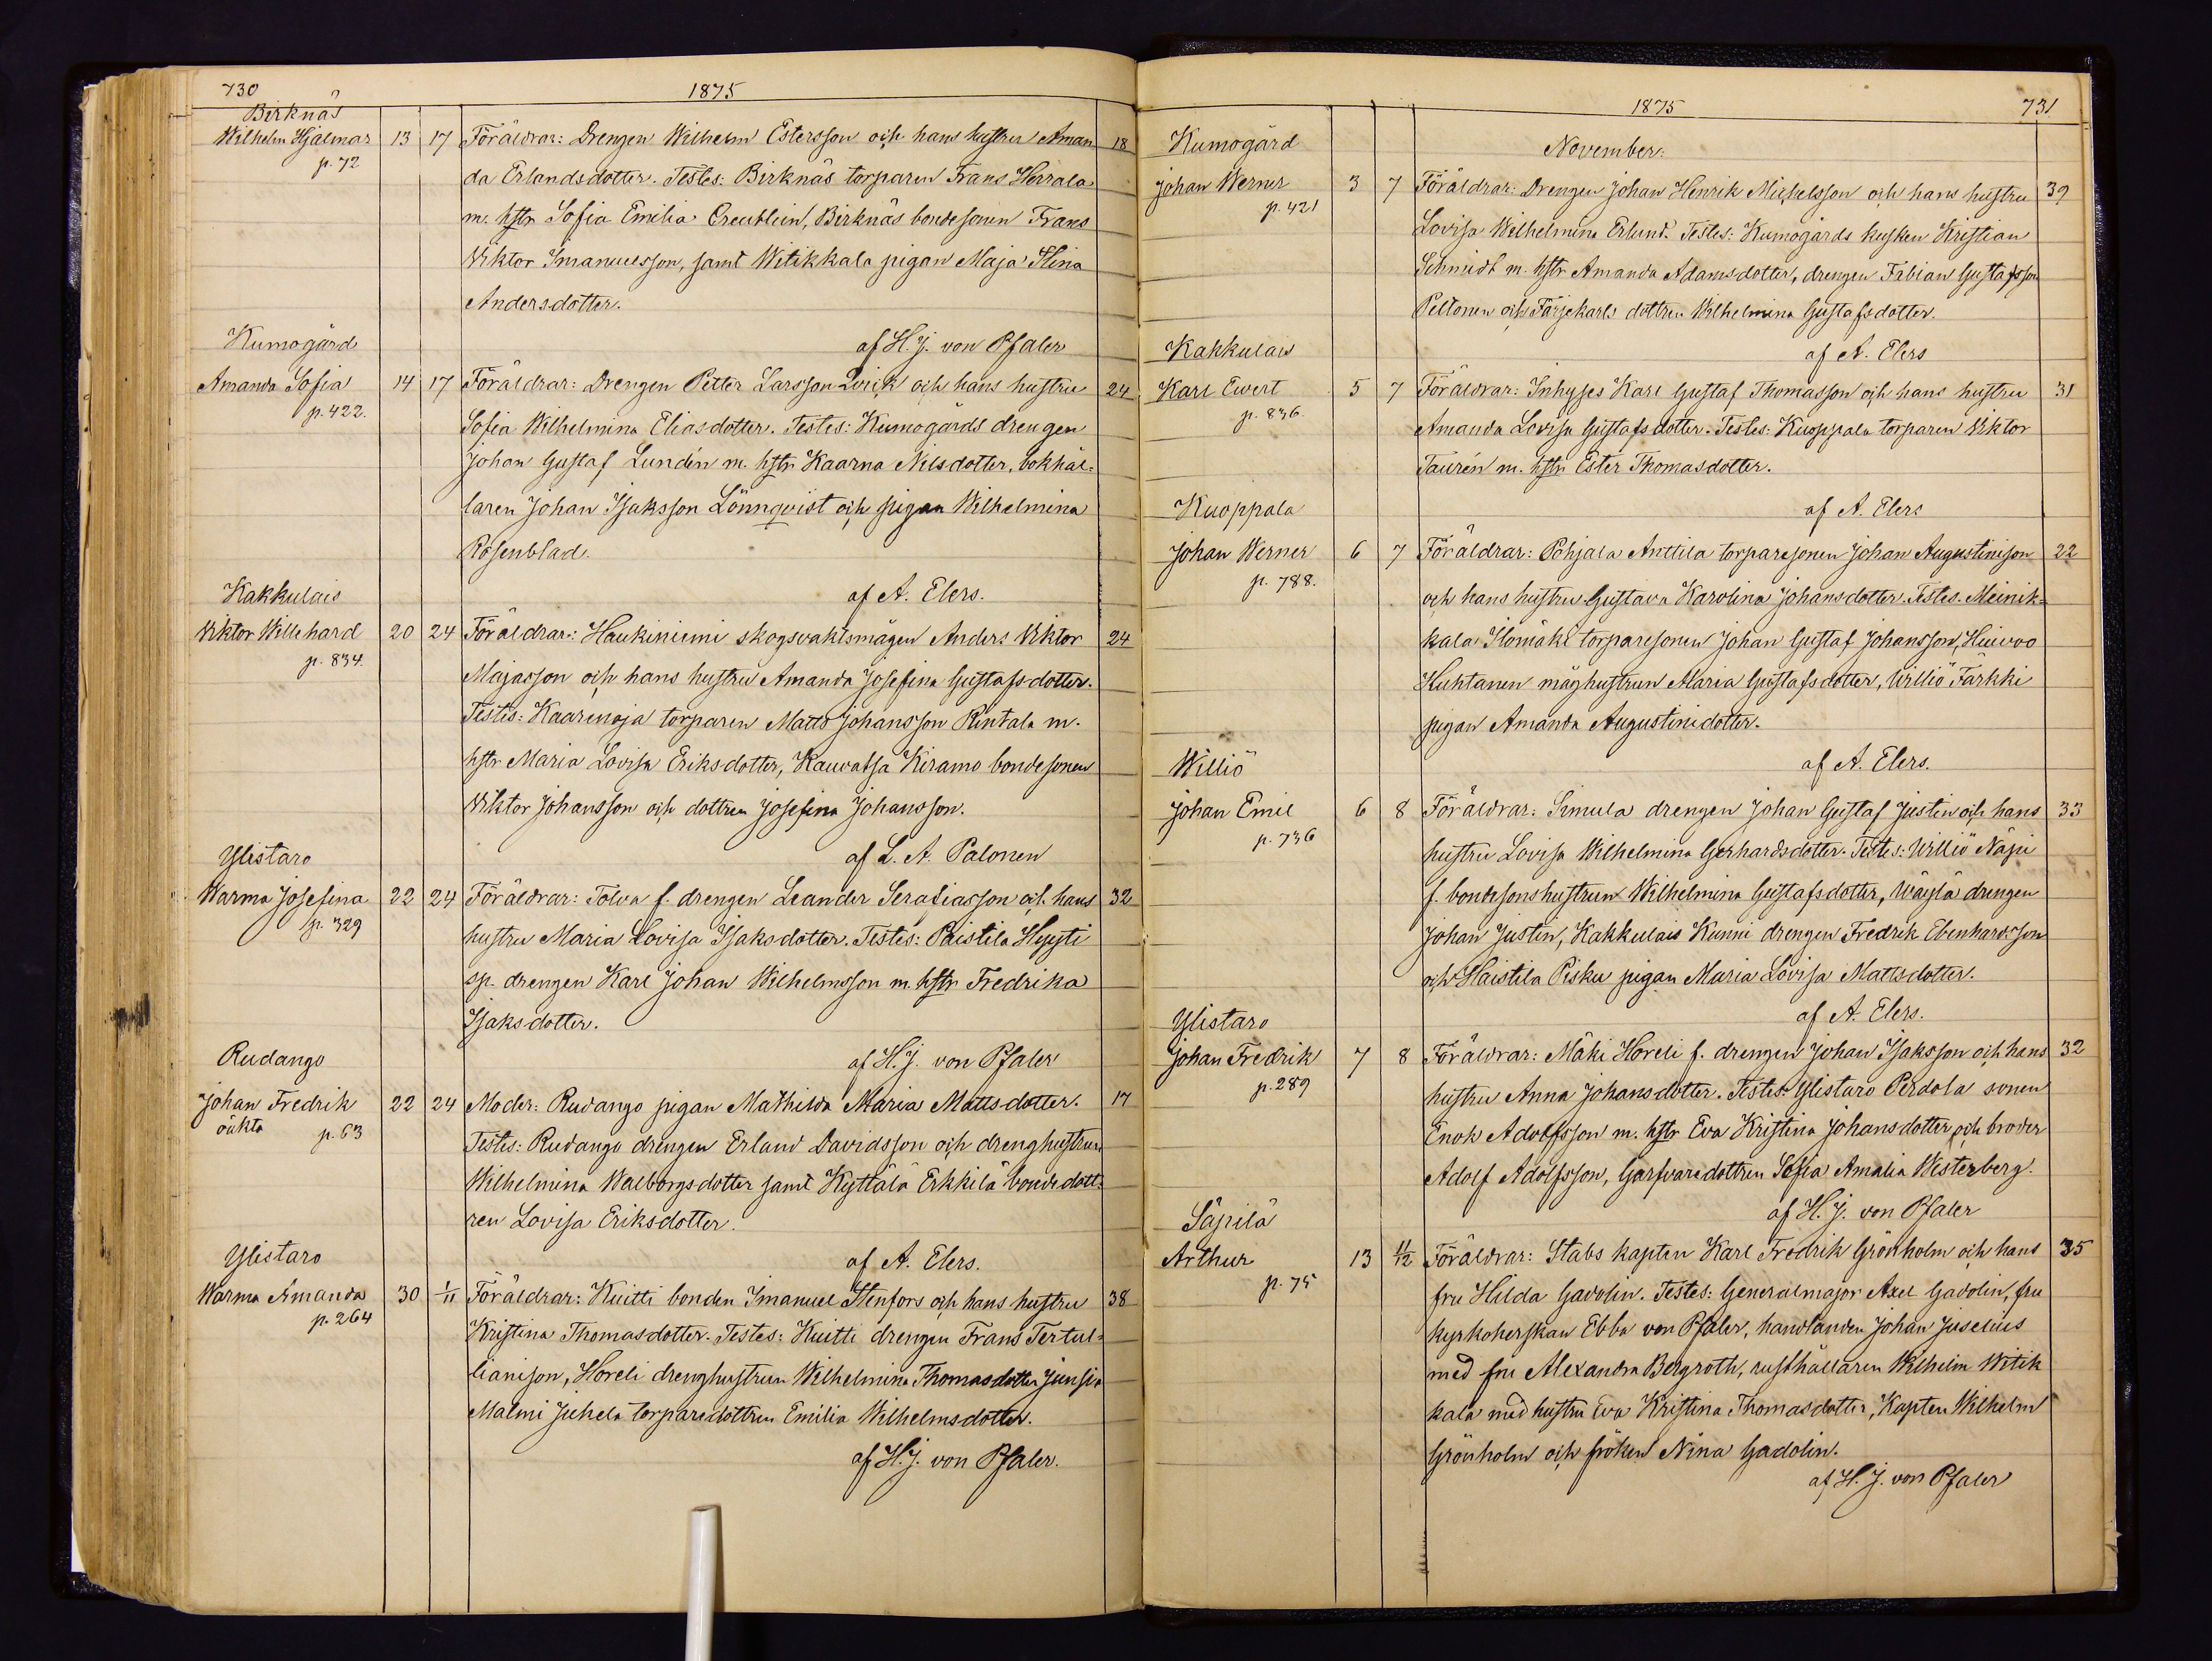 730
1875
Birknäs
Wilhelm Hjalmar 13 17 Föräldrar: Drengen Wilhelm Estersson och hans hustru Aman 18
p. 72 da Erlandsdotter. Testes: Birknäs torparen Frans Herrala
m. hstr Sofia Emilia Oreutlin, Birknäs bondesonen Frans
Viktor Imanuelsson, samt Witikkala pigan Maja Stina
Andersdotter.
Kumogård af H. J. von Pfaler
Amanda Sofia 14 17 Föräldrar: Drengen Petter Larsson Qvick och hans hustru 24
p. 422. Sofia Wilhelmina Eliasdotter. Testes: Kumogårds drengen
Johan Gustaf Lundén m. hstr Kaarna Nilsdotter, bokhål-
laren Johan Isaksson Lönnqvist och pigan Wilhelmina
Rosenblad.
Kakkulais af A. Elers.
Viktor Willehard 20 24 Föräldrar: Haukiniemi skogsvaktsmågen Anders Viktor 24
p. 834. Majasson och hans hustru Amanda Josefina Gustafsdotter.
Testes: Kaarenoja torparen Matts Johansson Rintala m.
hstr Maria Lovisa Eriksdotter, Kauvatsa Kiramo bondesonen
Viktor Johansson och dottren Josefina Johansson.
Ylistaro af L. A. Palonen
Warma Josefina 22 24 Föräldrar: Tolva f. drengen Leander Serafiasson och hans 32
p. 329 hustru Maria Lovisa Isaksdotter. Testes: Paistila Hyyti
sp. drengen Karl Johan Wilhelmsson m. hstr Fredrika
Isaksdotter.
Rudango af H. J. von Pfaler
Johan Fredrik 22 24 Moder: Rudango pigan Mathilda Maria Mattsdotter. 17
oäkta p. 63 Testes: Rudango drengen Erland Davidsson och drenghustrun
Wilhelmina Walborgsdotter samt Kyttälä Erkkilä bondedott-
ren Lovisa Eriksdotter.
Ylistaro af A. Elers.
Warma Amanda 30 1/11 Föräldrar: Kuitti bonden Imanuel Stenfors och hans hustru 38
p. 264 Kristina Thomasdotter. Testes: Kuitti drengen Frans Tertul-
lianison, Horeli drenghustrun Wilhelmina Thomasdotter
Malmi Juhela torparedottren Emilia Wilhelmsdotter.
af H. J. von Pfaler.
1875 731
Kumogård November.
Johan Werner 3 7 Föräldrar: Drengen Johan Henrik Michelsson och hans hustru 39
p. 421 Lovisa Wilhelmina Erlund. Testes: Kumogårds kusken Kristian
Schmidt m. hstr Amanda Adamsdotter, drengen Fabian Gustafsson
Peltonen och Färjekarls dottren Wilhelmina Gustafsdotter.
Kakkulais af A. Elers
Karl Evert 5 7 Föräldrar: Inhyses Karl Gustaf Thomasson och hans hustru 31
p. 836. Amanda Lovisa Gustafsdotter. Testes: Kuoppala torparen Viktor
Taurén m. hstr Ester Thomasdotter.
Kuoppala af A. Elers
Johan Werner 6 7 Föräldrar: Pohjala Anttila torparesonen Johan Augustinison 22
p. 788. och hans hustru Gustava Karolina Johansdotter. Testes. Meinik-
kala Ilomäki torparesonen Johan Gustaf Johansson, Huivoo
Kuhtanen måghustrun Maria Gustafsdotter, Williö Färkki
pigan Amanda Augustinidotter.
Williö af A. Elers.
Johan Emil 6 8 Föräldrar: Simula drengen Johan Gustaf Justin och hans 33
p. 736 hustru Lovisa Wilhelmina Gerhardsdotter. Testes: Williö Näpi
f. bondesonshustrun Wilhelmina Gustafsdotter, Wäylä drengen
Johan Justin, Kakkulais Kunni drengen Fredrik Ebenhardsson
och Haistila Pisku pigan Maria Lovisa Mattsdotter.
Ylistaro af A. Elers.
Johan Fredrik 7 8 Föräldrar: Mäki Horeli f. drengen Johan Isaksson och hans 32
p. 289 hustru Anna Johansdotter. Testes: Ylistaro Perdola sonen
Enok Adolfsson m. hstr Eva Kristina Johansdotter och broder
Adolf Adolfsson, Garfvaredottren Sofia Amalia Westerberg.
Säpilä af H. J. von Pfaler
Arthur 13 11/12 Föräldrar: Stabs kapten Karl Fredrik Grönholm och hans 35
p. 75 fru Hilda Gadolin. Testes: Generalmajor Axel Gadolin, fru
kyrkoherskan Ebba von Pfaler, handlanden Johan Juselius
med fru Alexandra Bergroth, rusthållaren Wilhelm Witik
kala med hustru Eva Kristina Thomasdotter, Kapten Wilhelm
Grönholm och fröken Nina Gadolin.
af H. J. von Pfaler